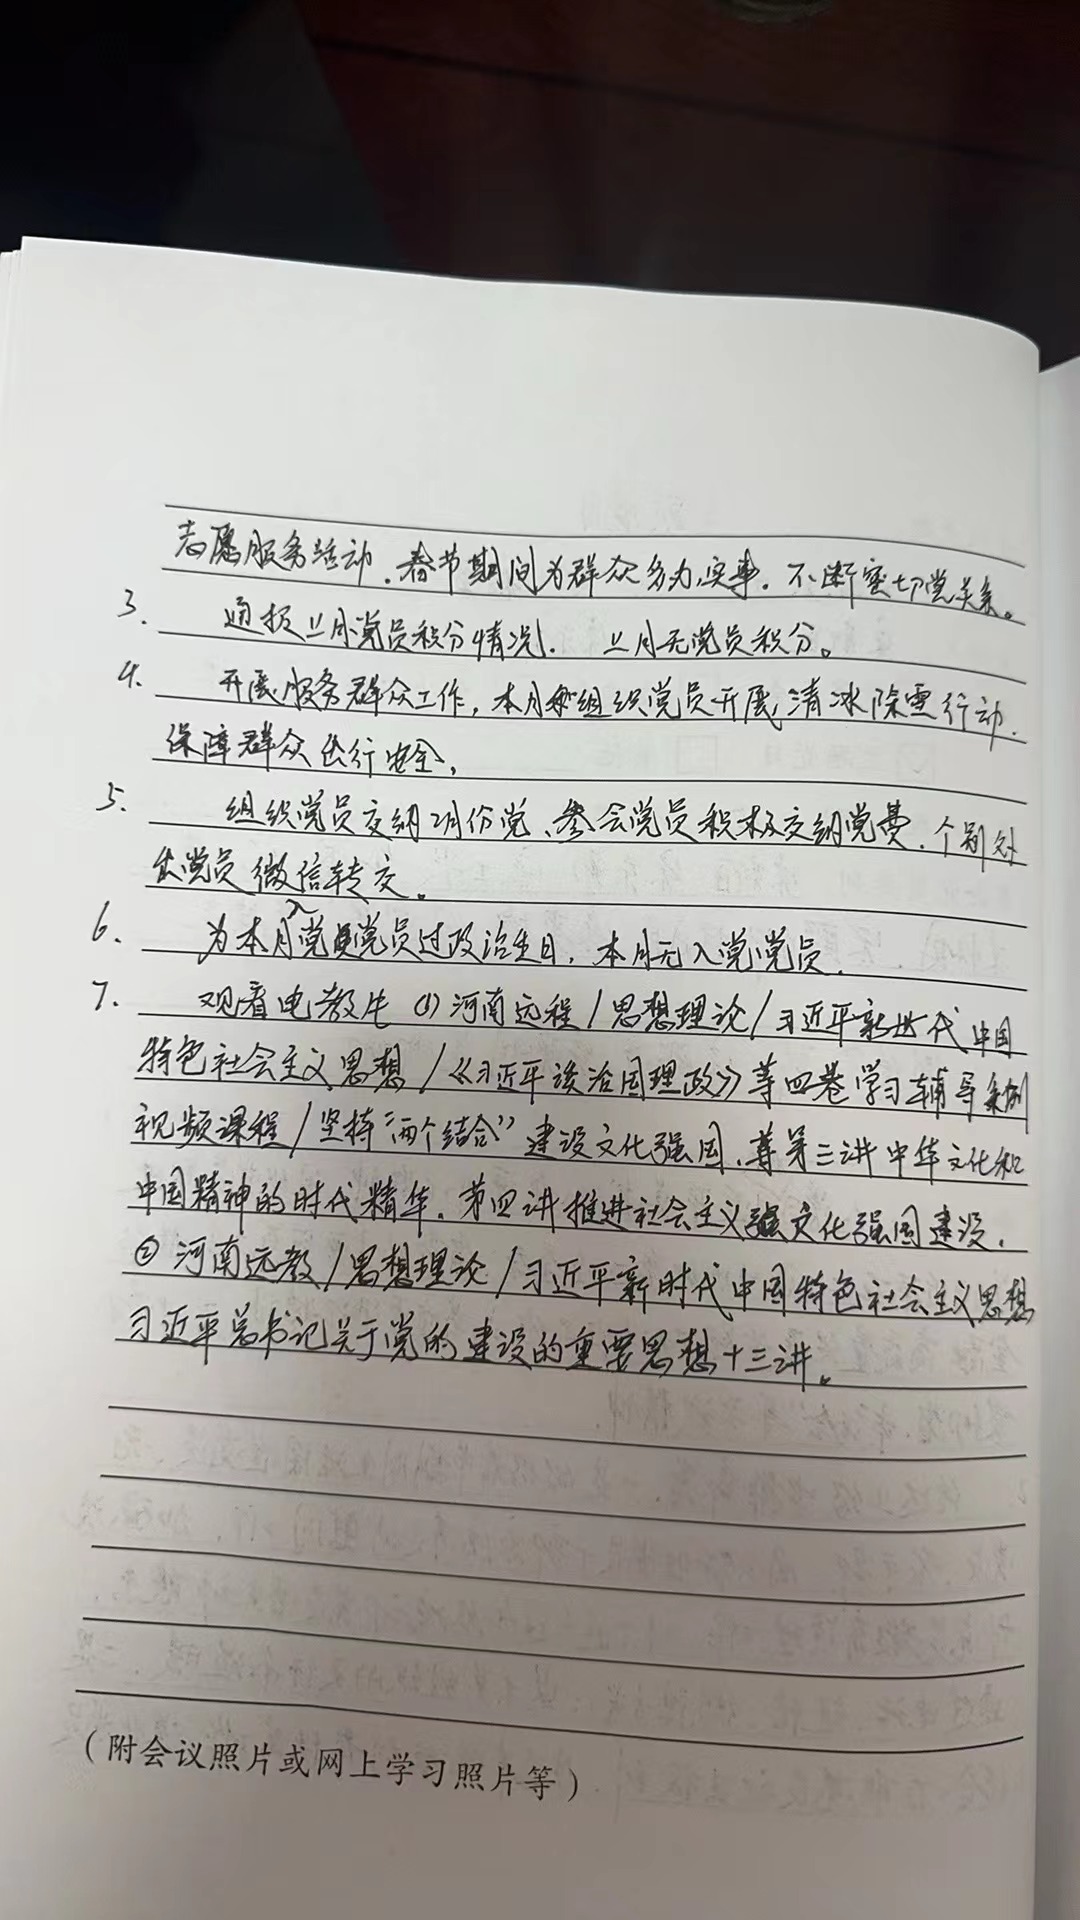 志愿服务活动,春节期间为群众多办实事,不断密切党关系。
3. 通报上月党员积分情况. 上月无党员积分。
4. 开展服务群众工作,本月组织党员开展清冰除雪行动.
保障群众出行安全,
5. 组织党员交纳2月份党、参会党员积极交纳党费.个别外
出党员微信转交。
6. 为本月入党党员过政治生日,本月无入党党员.
7. 观看电教片 ①河南远程/思想理论/习近平新时代中国
特色社会主义思想/《习近平谈治国理政》第四卷学习辅导案例
视频课程/坚持“两个结合”建设文化强国、第三讲中华文化和
中国精神的时代精华.第四讲推进社会主义文化强国建设.
②河南远教/思想理论/习近平新时代中国特色社会主义思想
习近平总书记关于党的建设的重要思想十三讲。
(附会议照片或网上学习照片等)